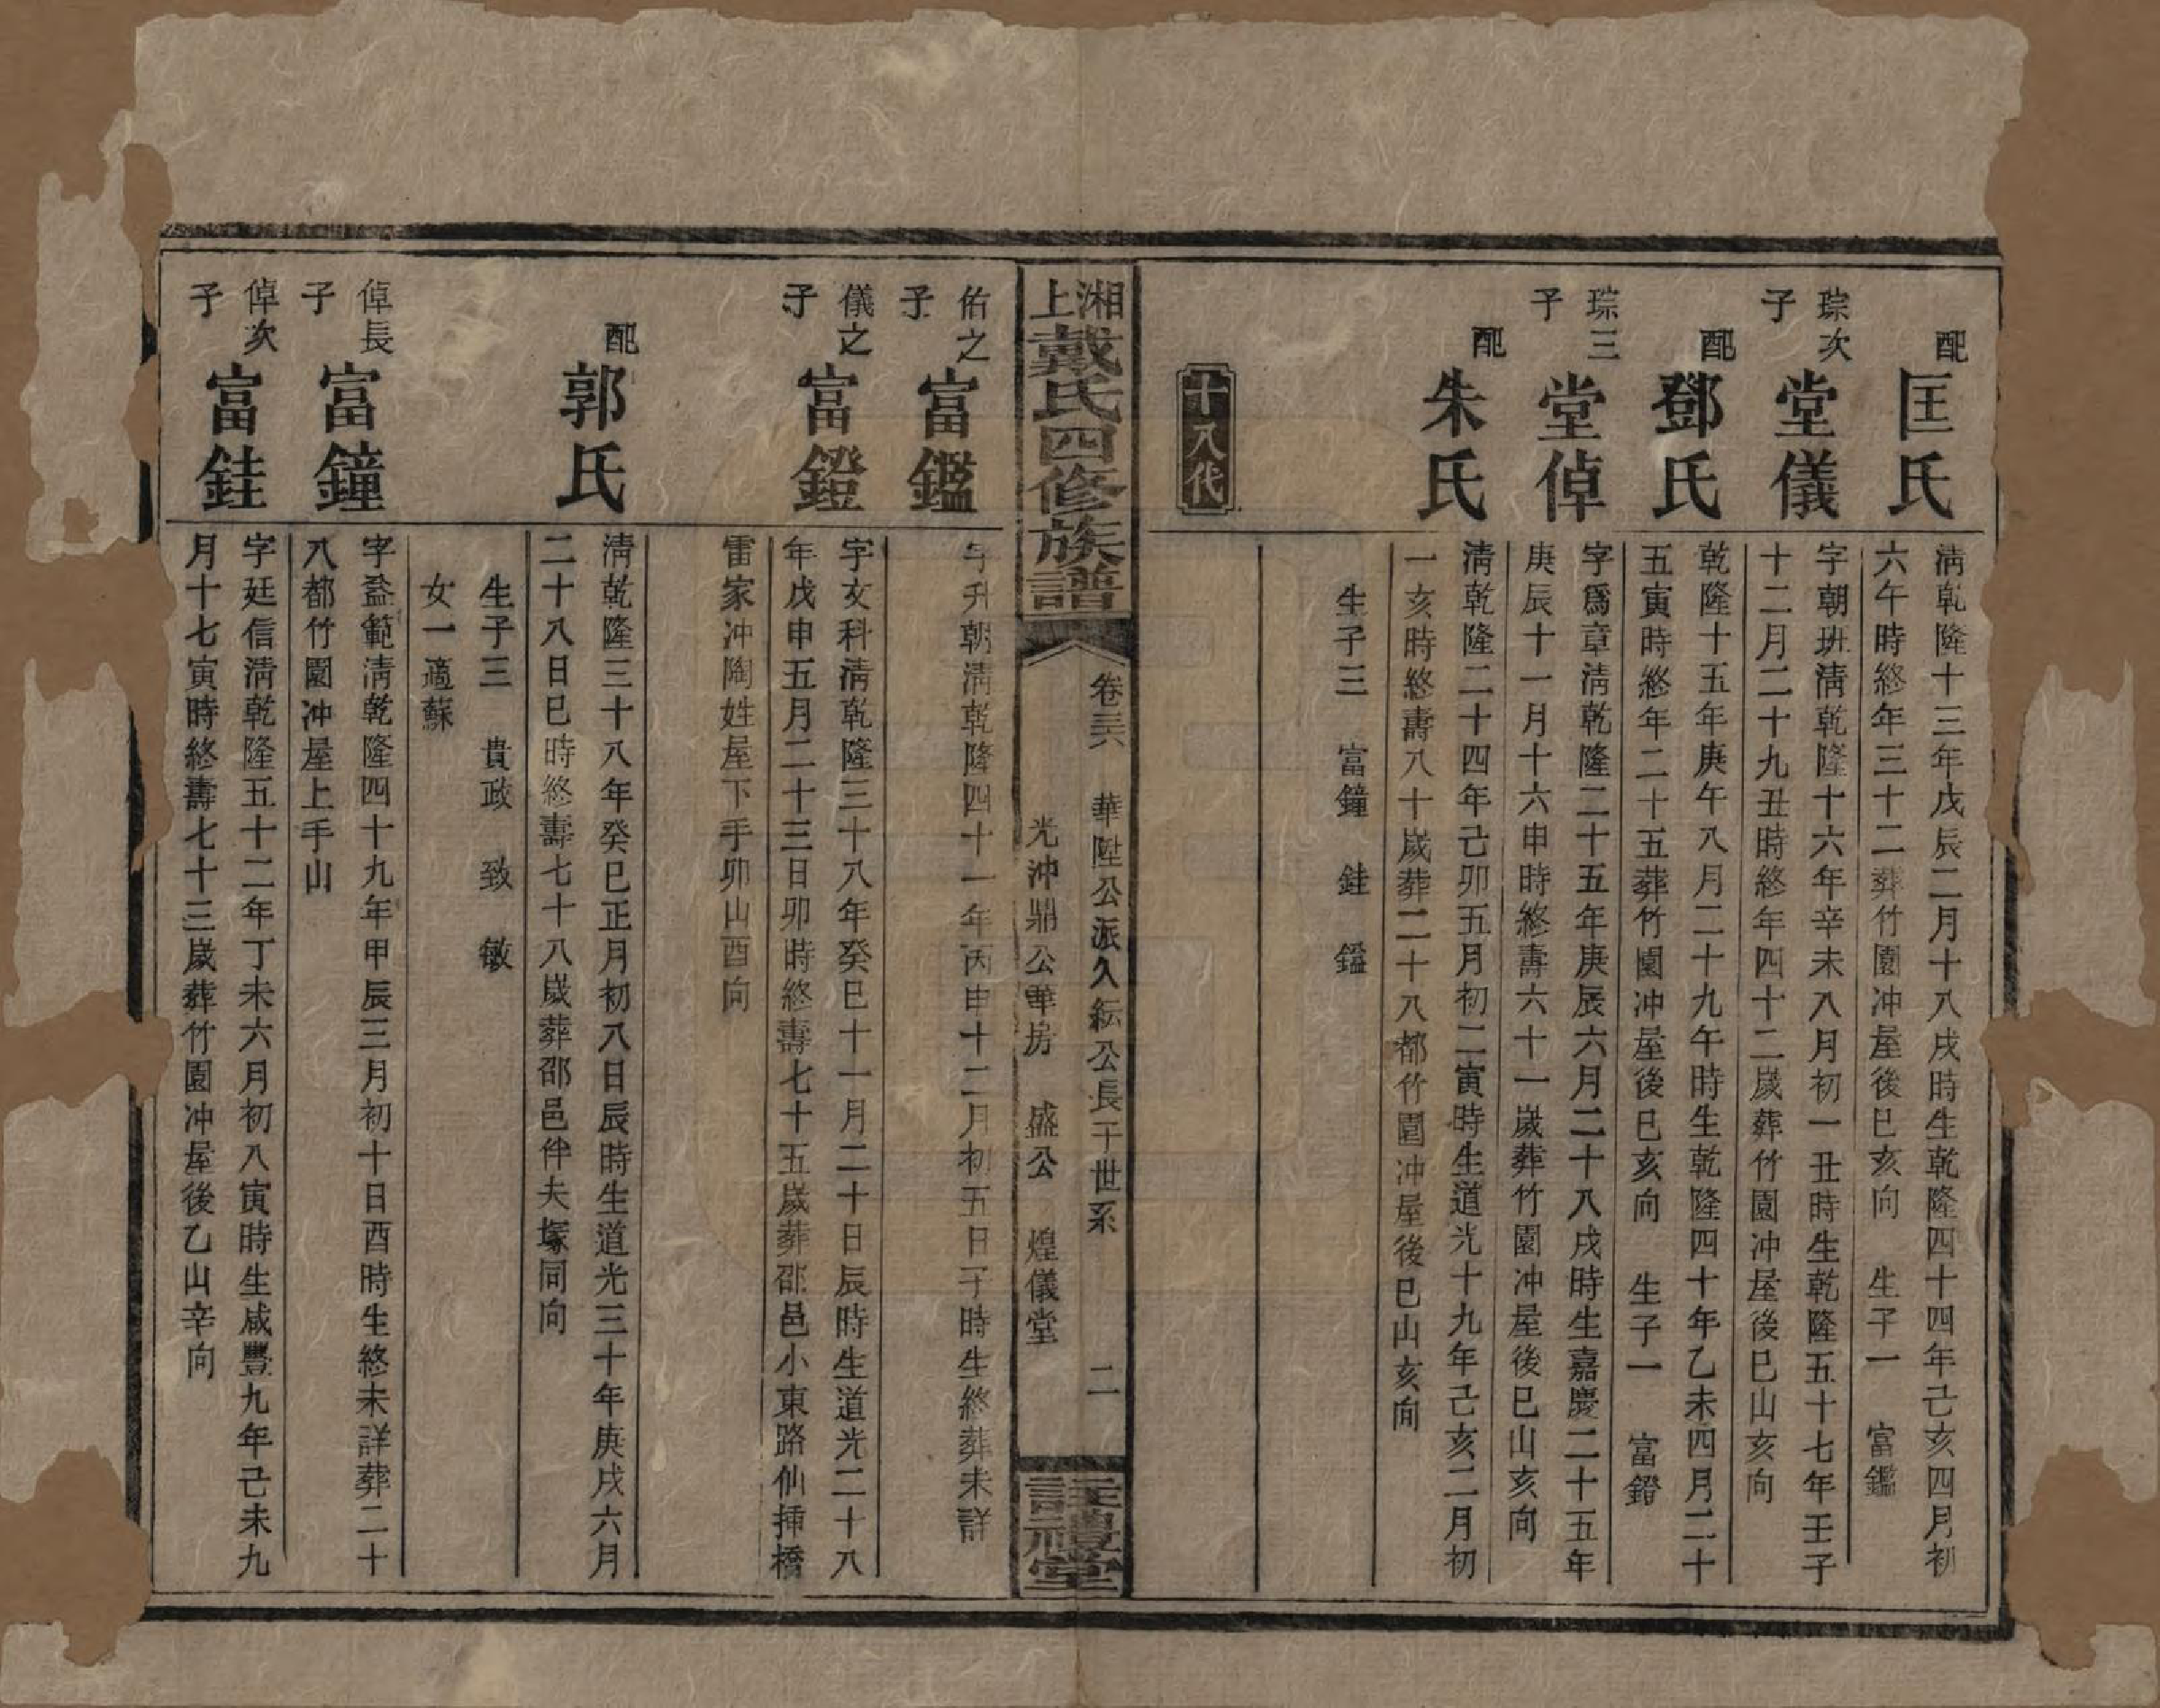 配
匡氏
清乾隆十三年戊辰二月十八戌時生乾隆四十四年己亥四月初
六午時終年三十二葬竹園冲屋後巳亥向　生子一　富鑑
琮次
子
堂儀
字朝班清乾隆十六年辛未八月初一丑時生乾隆五十七年壬子
十二月二十九丑時終年四十二歲葬竹園冲屋後巳山亥向
配
鄧氏
乾隆十五年庚午八月二十九午時生乾隆四十年乙未四月二十
五寅時終年二十五葬竹園冲屋後巳亥向　生子一　富鐙
琮三
子
堂倬
字爲章清乾隆二十五年庚辰六月二十八戌時生嘉慶二十五年
庚辰十一月十六申時終壽六十一歲葬竹園冲屋後巳山亥向
配
朱氏
清乾隆二十四年己卯五月初二寅時生道光十九年己亥二月初
一亥時終壽八十歲葬二十八都竹園冲屋後巳山亥向
生子三　富鐘　銈　鎰
十八代
湘上戴氏四修族譜
卷三六　華陞公派久紜公長干世系　二
光沖鼎公華房　盛公　煌儀堂
註禮堂
佑之
子
富鑑
字升朝清乾隆四十一年丙申十二月初五日子時生終葬未詳
儀之
子
富鐙
字文科清乾隆三十八年癸巳十一月二十日辰時生道光二十八
年戊申五月二十三日卯時終壽七十五歲葬邵邑小東路仙挿橋
雷家冲陶姓屋下手卯山酉向
配
郭氏
清乾隆三十八年癸巳正月初八日辰時生道光三十年庚戌六月
二十八日巳時終壽七十八歲葬邵邑伴夫塚同向
生子三　貴政　致　敏
女一適蘇
倬長
子
富鐘
字益範清乾隆四十九年甲辰三月初十日酉時生終未詳葬二十
八都竹園冲屋上手山
倬次
子
富銈
字廷信清乾隆五十二年丁未六月初八寅時生咸豐九年己未九
月十七寅時終壽七十三歲葬竹園冲屋後乙山辛向